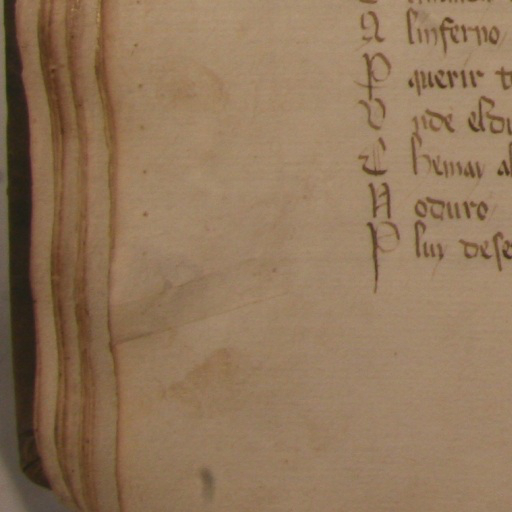 A linferno
P querir t
V ide eldu
T hemai al
N oduro
P lui dese